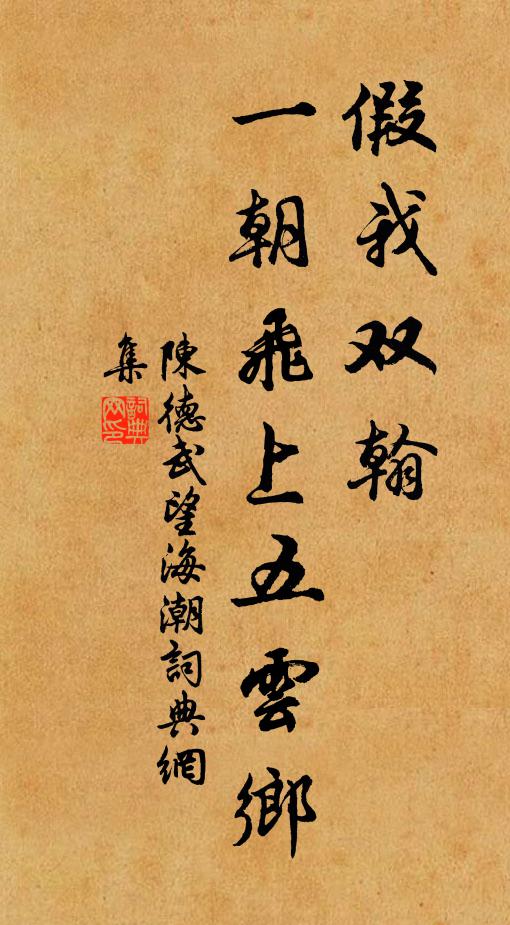 假我双翰
一朝飛上五雲鄉
陳德武望海潮詞典網
集
詞典
网印